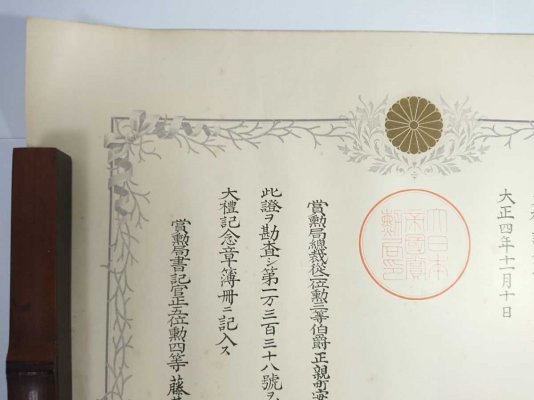 大正四年十一月十日
大日本帝國賞勲局印
賞勲局總裁從二位勲三等伯爵正親町實
此證ヲ勘査シ第一万三百三十八號ヲ
大禮記念章簿册ニ記入ス
賞勲局書記官正五位勲四等藤